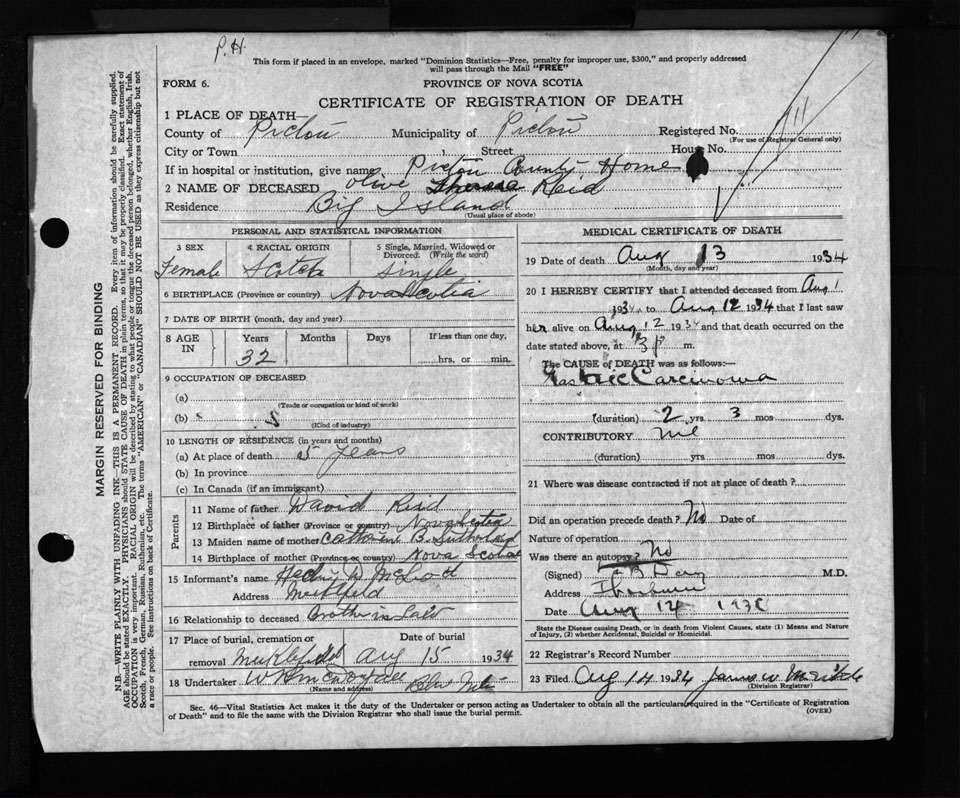 P.H.
This form if placed in an envelope, marked "Dominion Statistics—Free, penalty for improper use, $300," and properly addressed
will pass through the Mail "FREE"
FORM 6.
PROVINCE OF NOVA SCOTIA
CERTIFICATE OF REGISTRATION OF DEATH
1 PLACE OF DEATH
County of Pictou Municipality of Pictou Registered No.
(For use of Registrar General only)
City or Town Street House No.
If in hospital or institution, give name Pictou County Home
2 NAME OF DECEASED Olive Reid
Residence Big Island
(Usual place of abode)
PERSONAL AND STATISTICAL INFORMATION
3 SEX 4 RACIAL ORIGIN 5 Single, Married, Widowed or
Divorced. (Write the word)
Female Scotch Single
6 BIRTHPLACE (Province or country) Nova Scotia
7 DATE OF BIRTH (month, day and year)
8 AGE IN Years Months Days If less than one day,
32 hrs. or min.
9 OCCUPATION OF DECEASED
(a)
(Trade or occupation or kind of work)
(b) s S
(Kind of industry)
10 LENGTH OF RESIDENCE (in years and months)
(a) At place of death 5 years
(b) In province
(c) In Canada (if an immigrant)
Parents
11 Name of father David Reid
12 Birthplace of father (Province or country) Nova Scotia
13 Maiden name of mother Catherine B. Sutherland
14 Birthplace of mother (Province or country) Nova Scotia
15 Informant's name McLeod
Address Merklefield
16 Relationship to deceased Brother in Law
17 Place of burial, cremation or Date of burial
removal Aug 15 1934
18 Undertaker
(Name and address)
MEDICAL CERTIFICATE OF DEATH
19 Date of death Aug 13 1934
(Month, day and year)
20 I HEREBY CERTIFY that I attended deceased from Aug 1
1934 to Aug 12 1934 that I last saw
her alive on Aug 12 1934 and that death occurred on
date stated above, at 3 p m.
The CAUSE of DEATH was as follows:—
Gastric Carcinoma
(duration) 2 yrs 3 mos dys.
CONTRIBUTORY nil
(duration) yrs mos dys.
21 Where was disease contracted if not at place of death?
Did an operation precede death? No Date of
Nature of operation
Was there an autopsy? No
(Signed) M.D.
Address Thorburn
Date Aug 14
State the Disease causing Death, or in death from Violent Causes, state (1) Means and Nature
of Injury, (2) whether Accidental, Suicidal or Homicidal.
22 Registrar's Record Number
23 Filed Aug 14 1934 James W.
(Division Registrar)
Sec. 46—Vital Statistics Act makes it the duty of the Undertaker or person acting as Undertaker to obtain all the particulars required in the "Certificate of Registration
of Death" and to file the same with the Division Registrar who shall issue the burial permit.
(OVER)
MARGIN RESERVED FOR BINDING
N.B.—WRITE PLAINLY WITH UNFADING INK—THIS IS A PERMANENT RECORD. Every item of information should be carefully supplied.
AGE should be stated EXACTLY. PHYSICIANS should STATE CAUSE OF DEATH in plain terms, so that it may be properly classified. Exact statement of
OCCUPATION is very important. RACIAL ORIGIN will be described by stating to what people or tongue the deceased person belonged, whether English, Irish,
Scotch, French, German, Russian, Ruthenian, etc. The terms "AMERICAN" or "CANADIAN" SHOULD NOT BE USED as they express citizenship but not
a race or people. See instructions on back of Certificate.